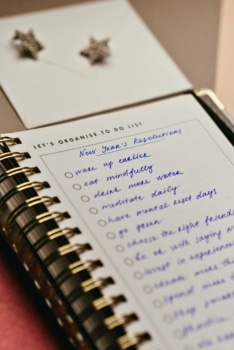 LET'S ORGANISE.TO DO LIST
New Year's Resolutions
wake up earlier
eat mindfully
drink more water
meditate daily
have mental reset days
go green
choose the right friends
be ok with saying no
invest in experiences
create more
spend more